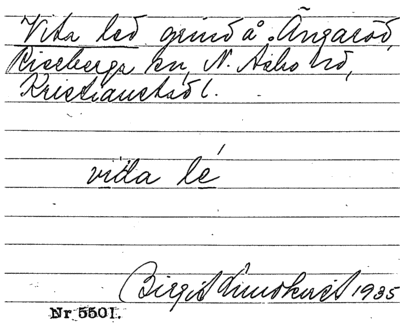 Vita led grind å Ängaröd,
Riseberga sn, N. Åsbo hd,
Kristianstads l.
vitta lé
Birgit 1935
Nr 5501.